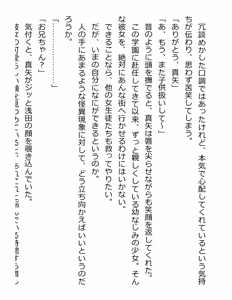 冗談めかした口調ではあったけれど、本気で心配してくれているという気持
ちが伝わり、思わず苦笑してしまう。
「ありがとう、真矢」
「あ、もう、また子供扱いして～」
昔のように頭を撫でると、真矢は唇を尖らせながらも笑顔を返してくれた。
この学園に赴任してきて以来、ずっと親しくしている幼なじみの少女。そん
な彼女を、絶対にあんな街へ行かせるわけにはいかない。
できることなら、他の女生徒たちも救ってやりたい。
だが、いまの自分になにができるというのか。
人の手にあまるような怪異現象に対して、どう立ち向かえばいいというのだ
ろうか。
「…………」
「お兄ちゃん？」
気付くと、真矢がジッと浅田の顔を覗き込んでいた。